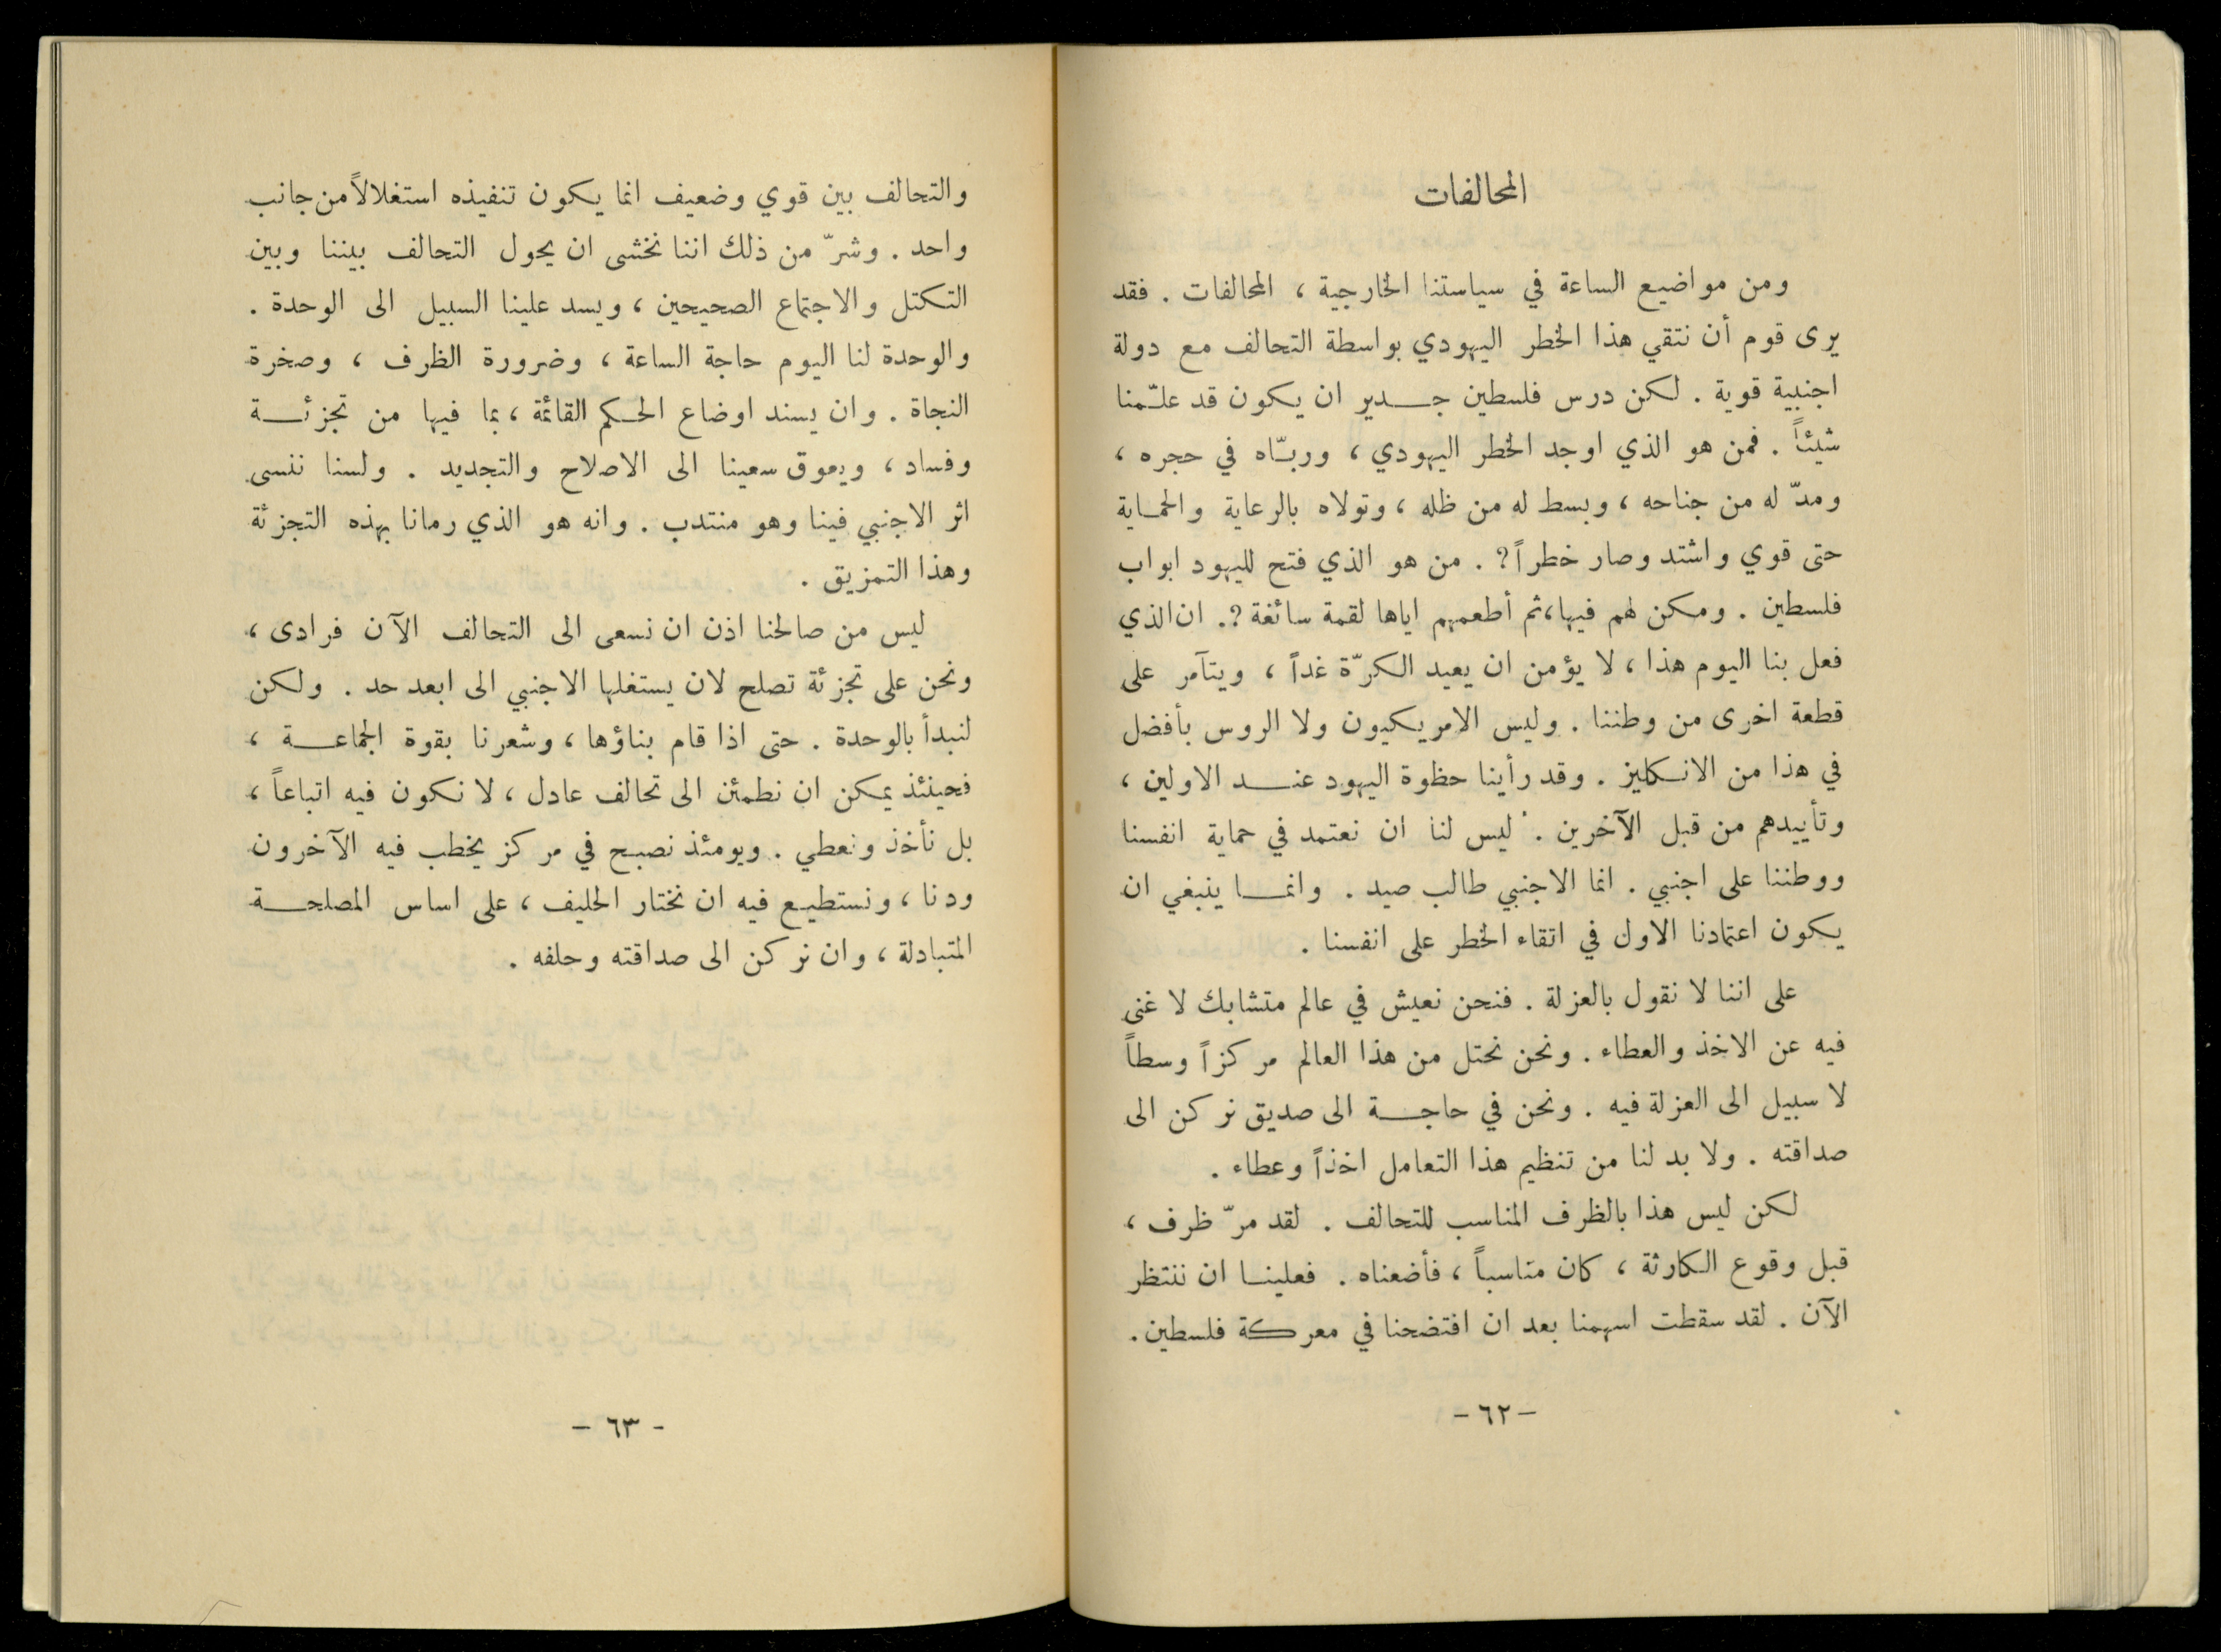 المحالفات
ومن مواضيع الساعة في سياستنا الخارجية ، المحالفات . فقد
يرى قوم أن نتقي هذا الخطر اليهودي بواسطة التحالف مع دولة
اجنبية قوية . لكن درس فلسطين جـدير ان يكون قد علّمنا
شيئاً . فمن هو الذي اوجد الخطر اليهودي ، وربّاه في حجره ،
ومدّ له من جناحه ، وبسط له من ظله ، وتولاه بالرعاية والحماية
حتى قوي واشتد وصار خطراً ؟ . من هو الذي فتح لليهود ابواب
فلسطين . ومكن لهم فيها ، ثم أطعمهم اياها لقمة سائغة ؟ . ان الذي
فعل بنا اليوم هذا ، لا يؤمن ان يعيد الكرّة غداً ، ويتآمر على
قطعة اخرى من وطننا . وليس الامريكيون ولا الروس بأفضل
في هذا من الانكليز . وقد رأينا حظوة اليهود عنـد الاولين ،
وتأييدهم من قبل الآخرين . ليس لنا ان نعتمد في حماية انفسنا
ووطننا على اجنبي . انما الاجنبي طالب صيد . وانمـا ينبغي ان
يكون اعتمادنا الاول في اتقاء الخطر على انفسنا .
على اننا لا نقول بالعزلة . فنحن نعيش في عالم متشابك لا غنى
فيه عن الاخذ والعطاء . ونحن نحتل من هذا العالم مركزاً وسطاً
لا سبيل الى العزلة فيه . ونحن في حاجـة الى صديق نركن الى
صداقته . ولا بد لنا من تنظيم هذا التعامل اخذاً وعطاء .
لكن ليس هذا بالظرف المناسب للتحالف . لقد مرّ ظرف ،
قبل وقوع الكارثة ، كان مناسباً ، فأضعناه . فعلينـا ان ننتظر
الآن . لقد سقطت اسهمنا بعد ان افتضحنا في معركة فلسطين .
- ٦٢ -
والتحالف بين قوي وضعيف انما يكون تنفيذه استغلالاً من جانب
واحد . وشرّ من ذلك اننا نخشى ان يحول التحالف بيننا وبين
التكتل والاجتماع الصحيحين ، ويسد علينا السبيل الى الوحدة .
والوحدة لنا اليوم حاجة الساعة ، وضرورة الظرف ، وصخرة
النجاة . وان يسند اوضاع الحكم القائمة ، بما فيها من تجزئـة
وفساد ، ويعوق سعينا الى الاصلاح والتجديد . ولسنا ننسى
اثر الاجنبي فينا وهو منتدب . وانه هو الذي رمانا بهذه التجزئة
وهذا التمزيق .
ليس من صالحنا اذن ان نسعى الى التحالف الآن فرادى ،
ونحن على تجزئة تصلح لان يستغلها الاجنبي الى ابعد حد . ولكن
لنبدأ بالوحدة . حتى اذا قام بناؤها ، وشعرنا بقوة الجماعـة ،
فحينئذ يمكن ان نطمئن الى تحالف عادل ، لا نكون فيه اتباعاً ،
بل نأخذ ونعطي . ويومئذ نصبح في مركز يخطب فيه الآخرون
ودنا ، ونستطيع فيه ان نختار الحليف ، على اساس المصلحـة
المتبادلة ، وان نركن الى صداقته وحلفه .
- ٦٣ -